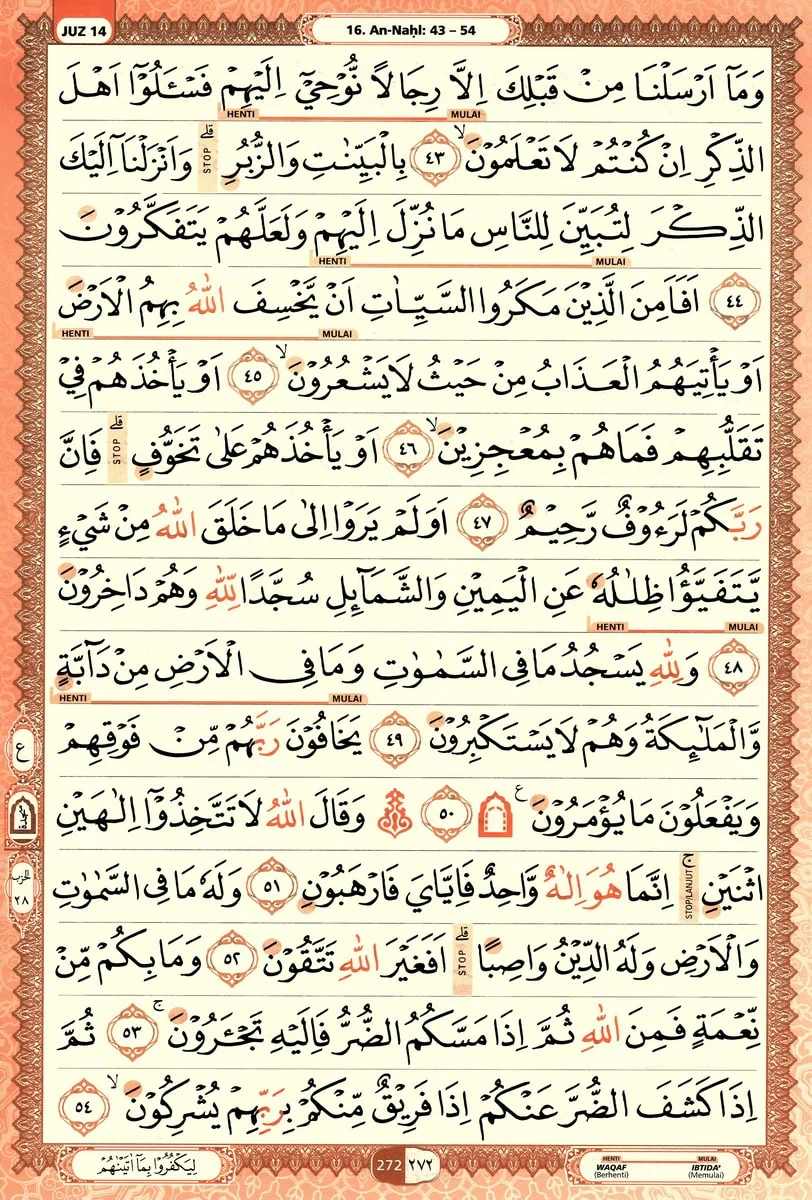 JUZ 14
16. An-Naḥl: 43 – 54
وَمَآ اَرْسَلْنَا مِنْ قَبْلِكَ اِلَّا رِجَالًا نُّوْحِيْٓ اِلَيْهِمْ فَسْـَٔلُوْٓا اَهْلَ
MULAI HENTI
الذِّكْرِ اِنْ كُنْتُمْ لَا تَعْلَمُوْنَۙ ٤٣ بِالْبَيِّنٰتِ وَالزُّبُرِۗ STOP وَاَنْزَلْنَآ اِلَيْكَ
الذِّكْرَ لِتُبَيِّنَ لِلنَّاسِ مَا نُزِّلَ اِلَيْهِمْ وَلَعَلَّهُمْ يَتَفَكَّرُوْنَ
MULAI HENTI
٤٤ اَفَاَمِنَ الَّذِيْنَ مَكَرُوا السَّيِّاٰتِ اَنْ يَّخْسِفَ اللّٰهُ بِهِمُ الْاَرْضَ
MULAI HENTI
اَوْ يَأْتِيَهُمُ الْعَذَابُ مِنْ حَيْثُ لَا يَشْعُرُوْنَۙ ٤٥ اَوْ يَأْخُذَهُمْ فِيْ
تَقَلُّبِهِمْ فَمَا هُمْ بِمُعْجِزِيْنَۙ ٤٦ اَوْ يَأْخُذَهُمْ عَلٰى تَخَوُّفٍۗ STOP فَاِنَّ
رَبَّكُمْ لَرَءُوْفٌ رَّحِيْمٌ ٤٧ اَوَلَمْ يَرَوْا اِلٰى مَا خَلَقَ اللّٰهُ مِنْ شَيْءٍ
يَّتَفَيَّؤُا ظِلٰلُهٗ عَنِ الْيَمِيْنِ وَالشَّمَاۤىِٕلِ سُجَّدًا لِّلّٰهِ وَهُمْ دَاخِرُوْنَ
MULAI HENTI
٤٨ وَلِلّٰهِ يَسْجُدُ مَا فِى السَّمٰوٰتِ وَمَا فِى الْاَرْضِ مِنْ دَاۤبَّةٍ
MULAI HENTI
وَّالْمَلٰۤىِٕكَةُ وَهُمْ لَا يَسْتَكْبِرُوْنَ ٤٩ يَخَافُوْنَ رَبَّهُمْ مِّنْ فَوْقِهِمْ
وَيَفْعَلُوْنَ مَا يُؤْمَرُوْنَ ࣖ ٥٠ وَقَالَ اللّٰهُ لَا تَتَّخِذُوْٓا اِلٰهَيْنِ
اثْنَيْنِۚ STOP/LANJUT اِنَّمَا هُوَ اِلٰهٌ وَّاحِدٌ فَاِيَّايَ فَارْهَبُوْنِ ٥١ وَلَهٗ مَا فِى السَّمٰوٰتِ
وَالْاَرْضِ وَلَهُ الدِّيْنُ وَاصِبًاۗ STOP اَفَغَيْرَ اللّٰهِ تَتَّقُوْنَ ٥٢ وَمَا بِكُمْ مِّنْ
نِّعْمَةٍ فَمِنَ اللّٰهِ ثُمَّ اِذَا مَسَّكُمُ الضُّرُّ فَاِلَيْهِ تَجْـَٔرُوْنَۚ ٥٣ ثُمَّ
اِذَا كَشَفَ الضُّرَّ عَنْكُمْ اِذَا فَرِيْقٌ مِّنْكُمْ بِرَبِّهِمْ يُشْرِكُوْنَۙ ٥٤
ع
سجدة
الحزب
٢٨
لِيَكْفُرُوْا بِمَآ اٰتَيْنٰهُمْ
272 ٢٧٢
HENTI MULAI
WAQAF IBTIDA'
(Berhenti) (Memulai)